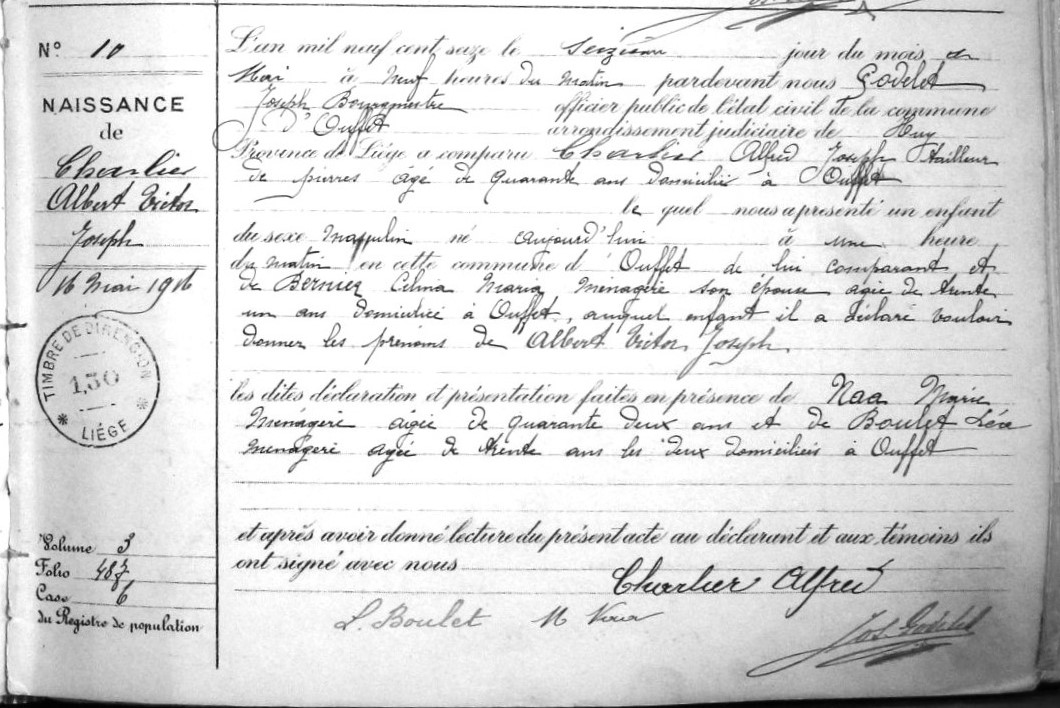 N° 10
NAISSANCE
de
Charlier
Albert Victor
Joseph
16 Mai 1916
TIMBRE DE DIMENSION
1,30
* LIÉGE *
Volume 3
Folio 487
Case 6
du Registre de population
L'an mil neuf cent seize le seizième jour du mois de
Mai à neuf heures du matin pardevant nous Godelet
Joseph Bourgmestre officier public de l'état civil de la commune
d'Ouffet arrondissement judiciaire de Huy
Province de Liége a comparu Charlier Alfred Joseph tailleur
de pierres agé de quarante ans domicilié à Ouffet
le quel nous a présenté un enfant
du sexe masculin né aujourd'hui à une heure
du matin en cette commune d'Ouffet de lui comparant et
de Bernier Celina Maria ménagère son épouse agée de trente
un ans domiciliée à Ouffet, auquel enfant il a déclaré vouloir
donner les prénoms de Albert Victor Joseph
les dites déclaration et présentation faites en présence de Naa Marie
ménagère agée de quarante deux ans et de Boulet Léa
ménagère agée de trente ans les deux domiciliées à Ouffet
et après avoir donné lecture du présent acte au déclarant et aux témoins ils
ont signé avec nous
Charlier Alfred
L. Boulet M Naa
Jos. Godelet